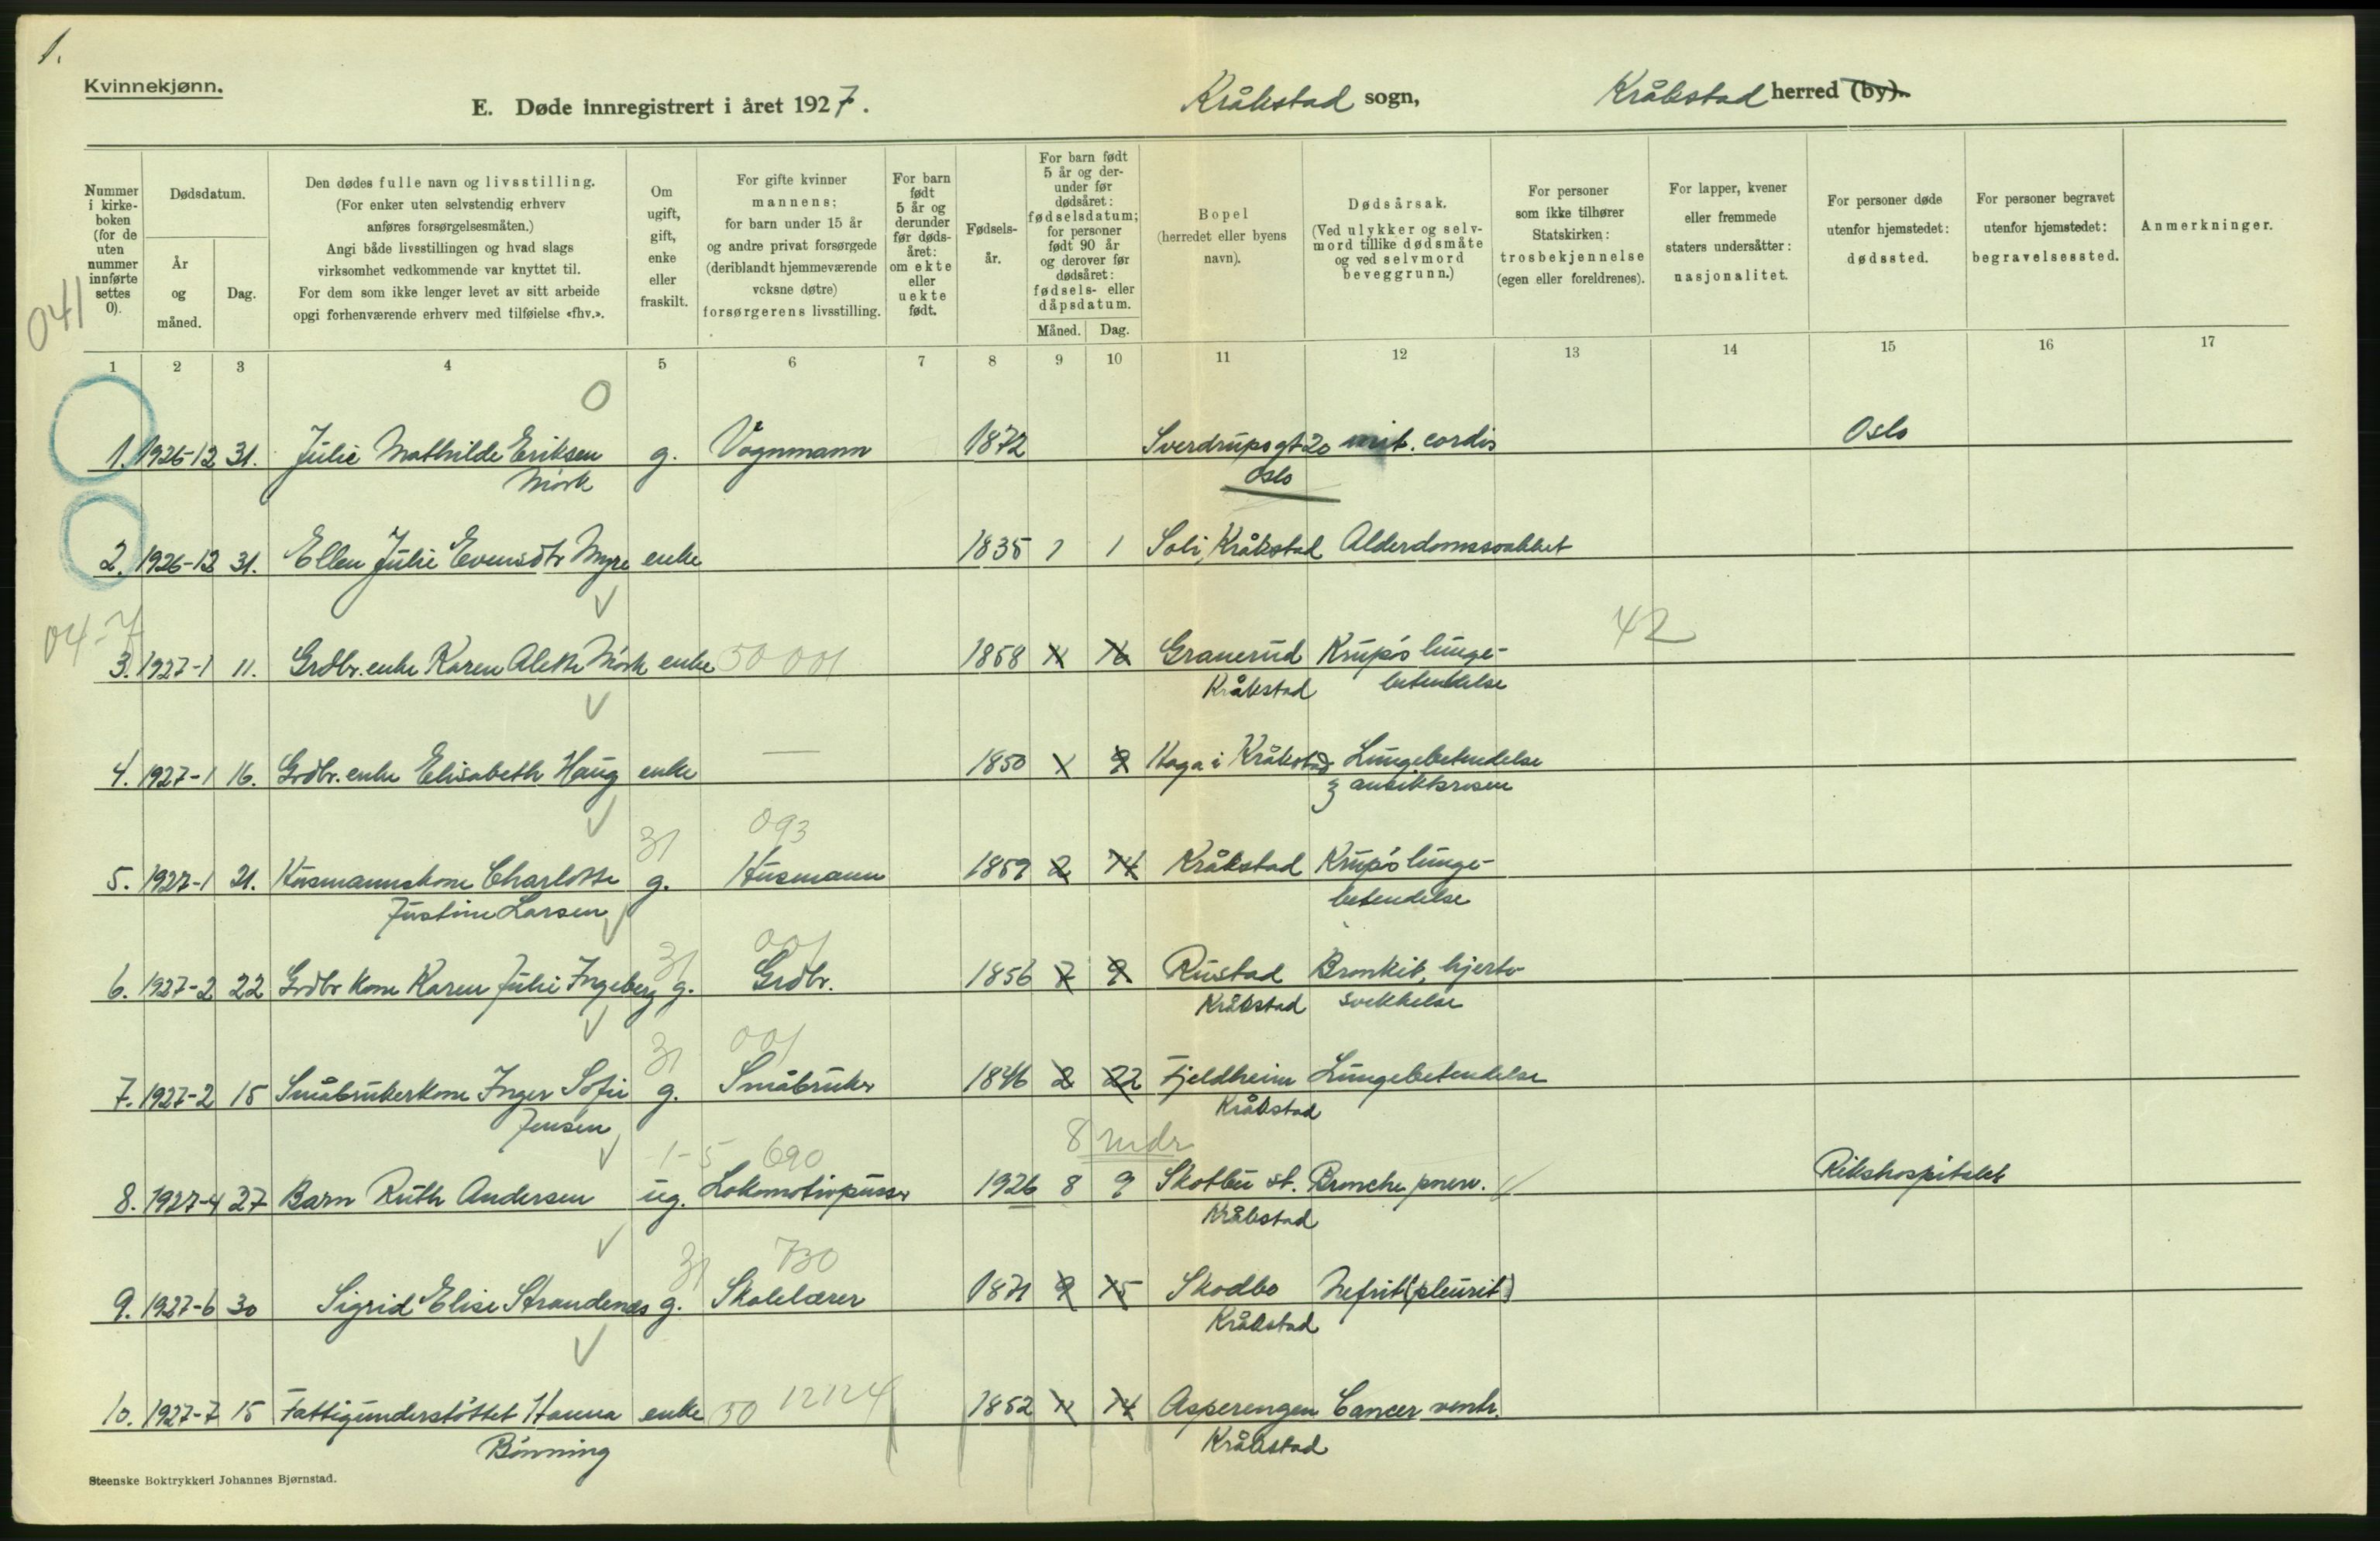 1.
Kvinnekjønn.
E. Døde innregistrert i året 1927.
Kråkstad sogn,
Kråkstad herred (by).
Nummer i kirkeboken (for de uten nummer innførte settes 0).
Dødsdatum.
År og måned.
Dag.
Den dødes fulle navn og livsstilling.
(For enker uten selvstendig erhverv
anføres forsørgelsesmåten.)
Angi både livsstillingen og hvad slags
virksomhet vedkommende var knyttet til.
For dem som ikke lenger levet av sitt arbeide
opgi forhenværende erhverv med tilføielse «fhv.».
Om ugift, gift, enke eller fraskilt.
For gifte kvinner
mannens;
for barn under 15 år
og andre privat forsørgede
(deriblandt hjemmeværende
voksne døtre)
forsørgerens livsstilling.
For barn født 5 år og derunder før dødsåret: om ekte eller uekte født.
Fødselsår.
For barn født 5 år og derunder før dødsåret: fødselsdatum; for personer født 90 år og derover før dødsåret: fødsels- eller dåpsdatum.
Måned. Dag.
Bopel
(herredet eller byens
navn).
Dødsårsak.
(Ved ulykker og selvmord tillike dødsmåte og ved selvmord beveggrunn.)
For personer
som ikke tilhører
Statskirken:
trosbekjennelse
(egen eller foreldrenes).
For lapper, kvener
eller fremmede
staters undersåtter:
nasjonalitet.
For personer døde
utenfor hjemstedet:
dødssted.
For personer begravet
utenfor hjemstedet:
begravelsessted.
Anmerkninger.
041
1 2 3 4 5 6 7 8 9 10 11 12 13 14 15 16 17
0
1. 1926-12 31. Julie Mathilde Eriksen g. Vognmann 1872 Sverdrupsgt 20 vit. cordis Oslo
Mørk Oslo
2. 1926-12 31. Ellen Julie Evensdtr Myre enke 1835 1 1 Soli, Kråkstad Alderdomssvakhet
04-7
42
3. 1927-1 11. Grdbr. enke Karen Alette Mørk enke 50 001 1858 11 16 Granerud Krupøs lunge-
Kråkstad betendelse
4. 1927-1 16. Grdbr. enke Elisabeth Haug enke — 1850 1 9 Haga i Kråkstad Lungebetendelse
& ansiktsrosen
31 093
5. 1927-1 21. Husmannskone Charlotte g. Husmann 1859 2 14 Kråkstad Krupøs lunge-
Justine Larsen betendelse
31 001
6. 1927-2 22 Grdbr kone Karen Julie Ingeberg g. Grdbr. 1856 7 9 Rustad Bronkit, hjerte-
Kråkstad svekkelse
31 001
7. 1927-2 15 Småbrukerkone Inger Sofie g. Småbruker 1846 2 22 Fjeldheim Lungebetendelse
Jensen Kråkstad
1-5 690 8 mdr
8. 1927-4 27 Barn Ruth Andersen ug. Lokomotivpusser 1926 8 9 Skotbu st. Bronche pneu. Rikshospitalet
Kråkstad
31 730
9. 1927-6 30 Sigrid Elise Strandenæs g. Skolelærer 1871 9 15 Skodbo Nefrit (pleurit)
Kråkstad
10. 1927-7 15 Fattigunderstøttet Hanna enke 50 12124 1852 11 14 Asperengen Cancer ventr.
Bønning Kråkstad
Steenske Boktrykkeri Johannes Bjørnstad.